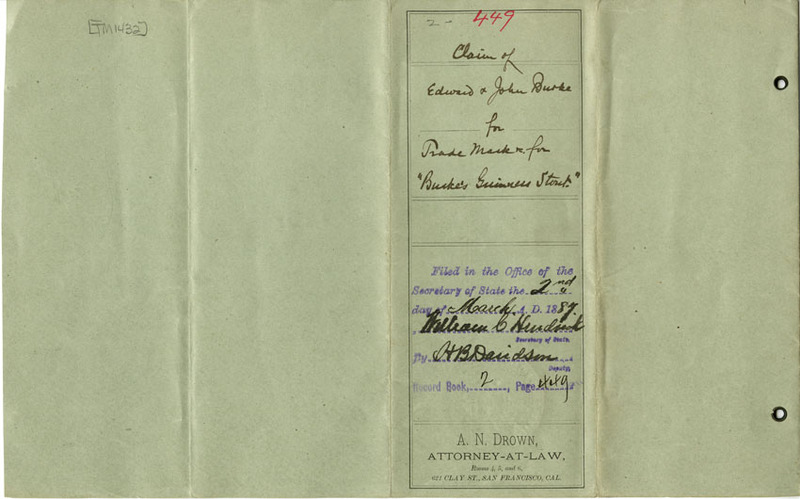 [TM1432]
2 - 449
Claim of
Edward & John Burke
for
Trade Mark & for
"Burke's Guinness Stout."
Filed in the Office of the
Secretary of State the 2nd
day of March A. D. 1887
William C Hendricks
Secretary of State.
By H B Davidson
Deputy.
Record Book, 2, Page 449
A. N. DROWN,
ATTORNEY-AT-LAW,
Rooms 4, 5, and 6,
621 CLAY ST., SAN FRANCISCO, CAL.